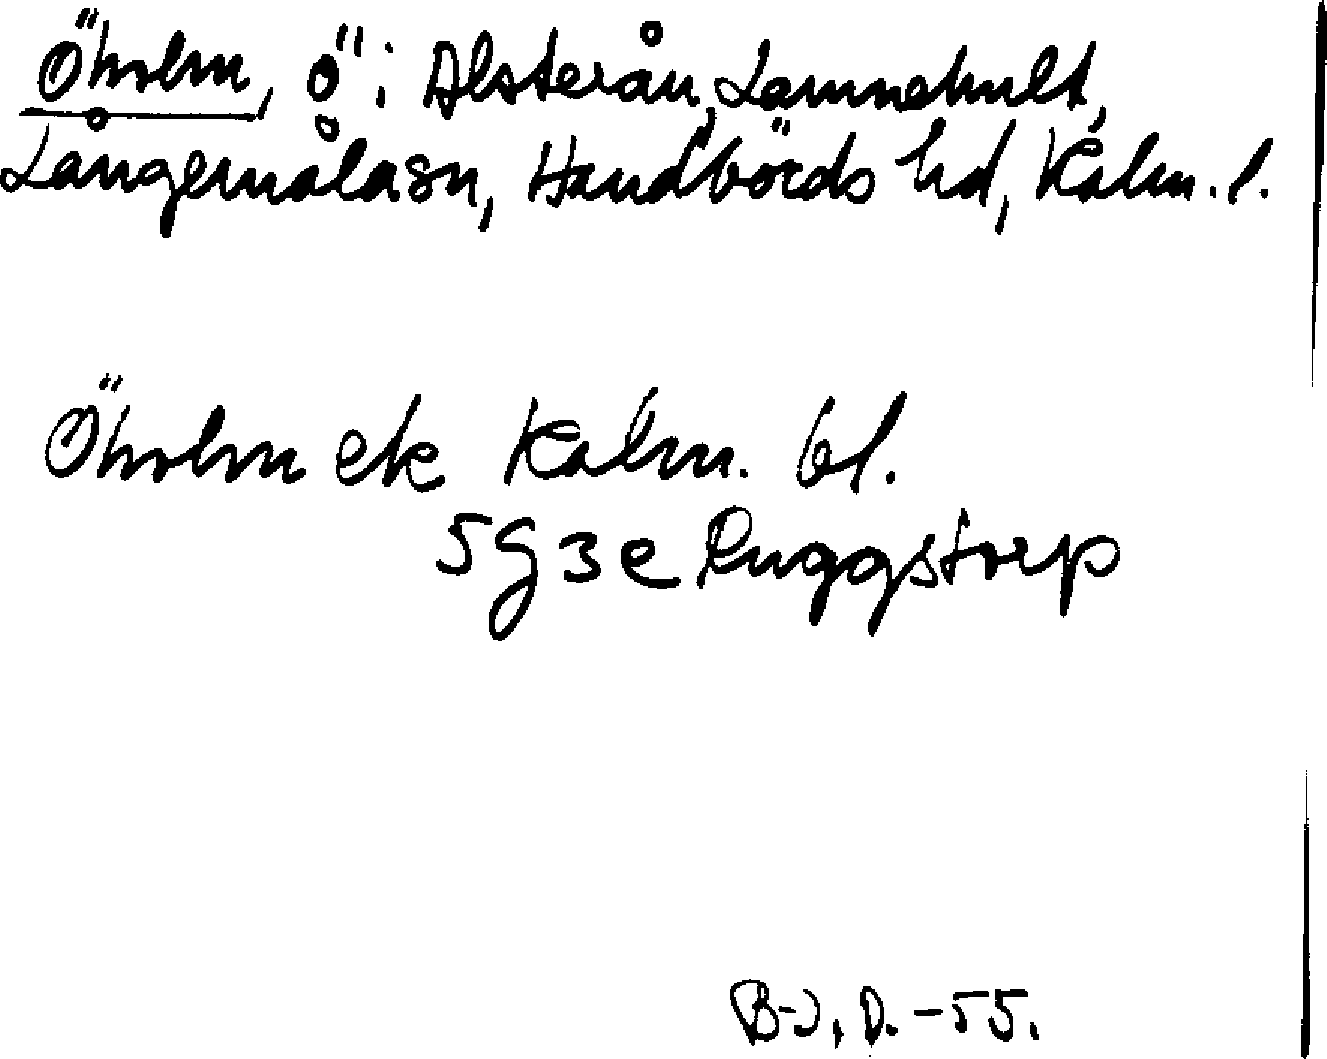 Öholm, ö i Alsterån, Lamnehult,
Långemåla sn, Handbörds hd, Kalm. l.
Öholm ek Kalm. bl.
5G3e Ruggstorp
B-J. D. -55.